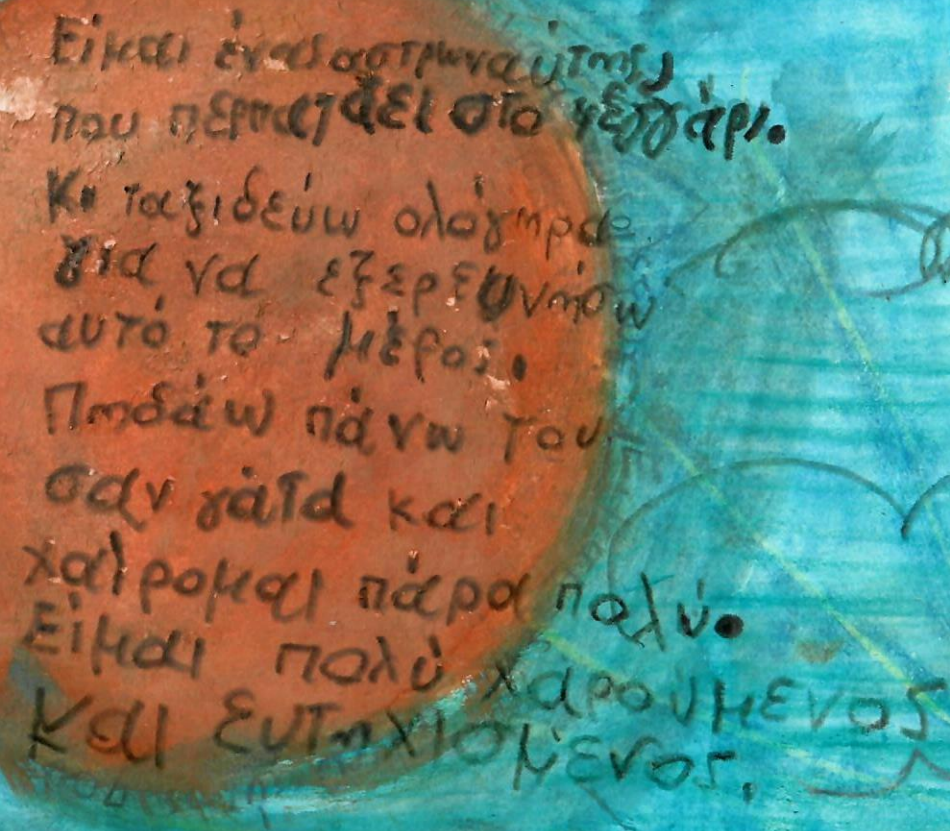 Είμαι ένας αστρωναύτης,
που περπατάει στο φεγγάρι.
Κι ταξιδεύω ολόγηρα
για να εξερευνήσω
αυτό το μέρος.
Πηδάω πάνω του
σαν γάτα και
χαίρομαι πάρα πολύ.
Είμαι πολύ χαρούμενος
και ευτηχισμένος.